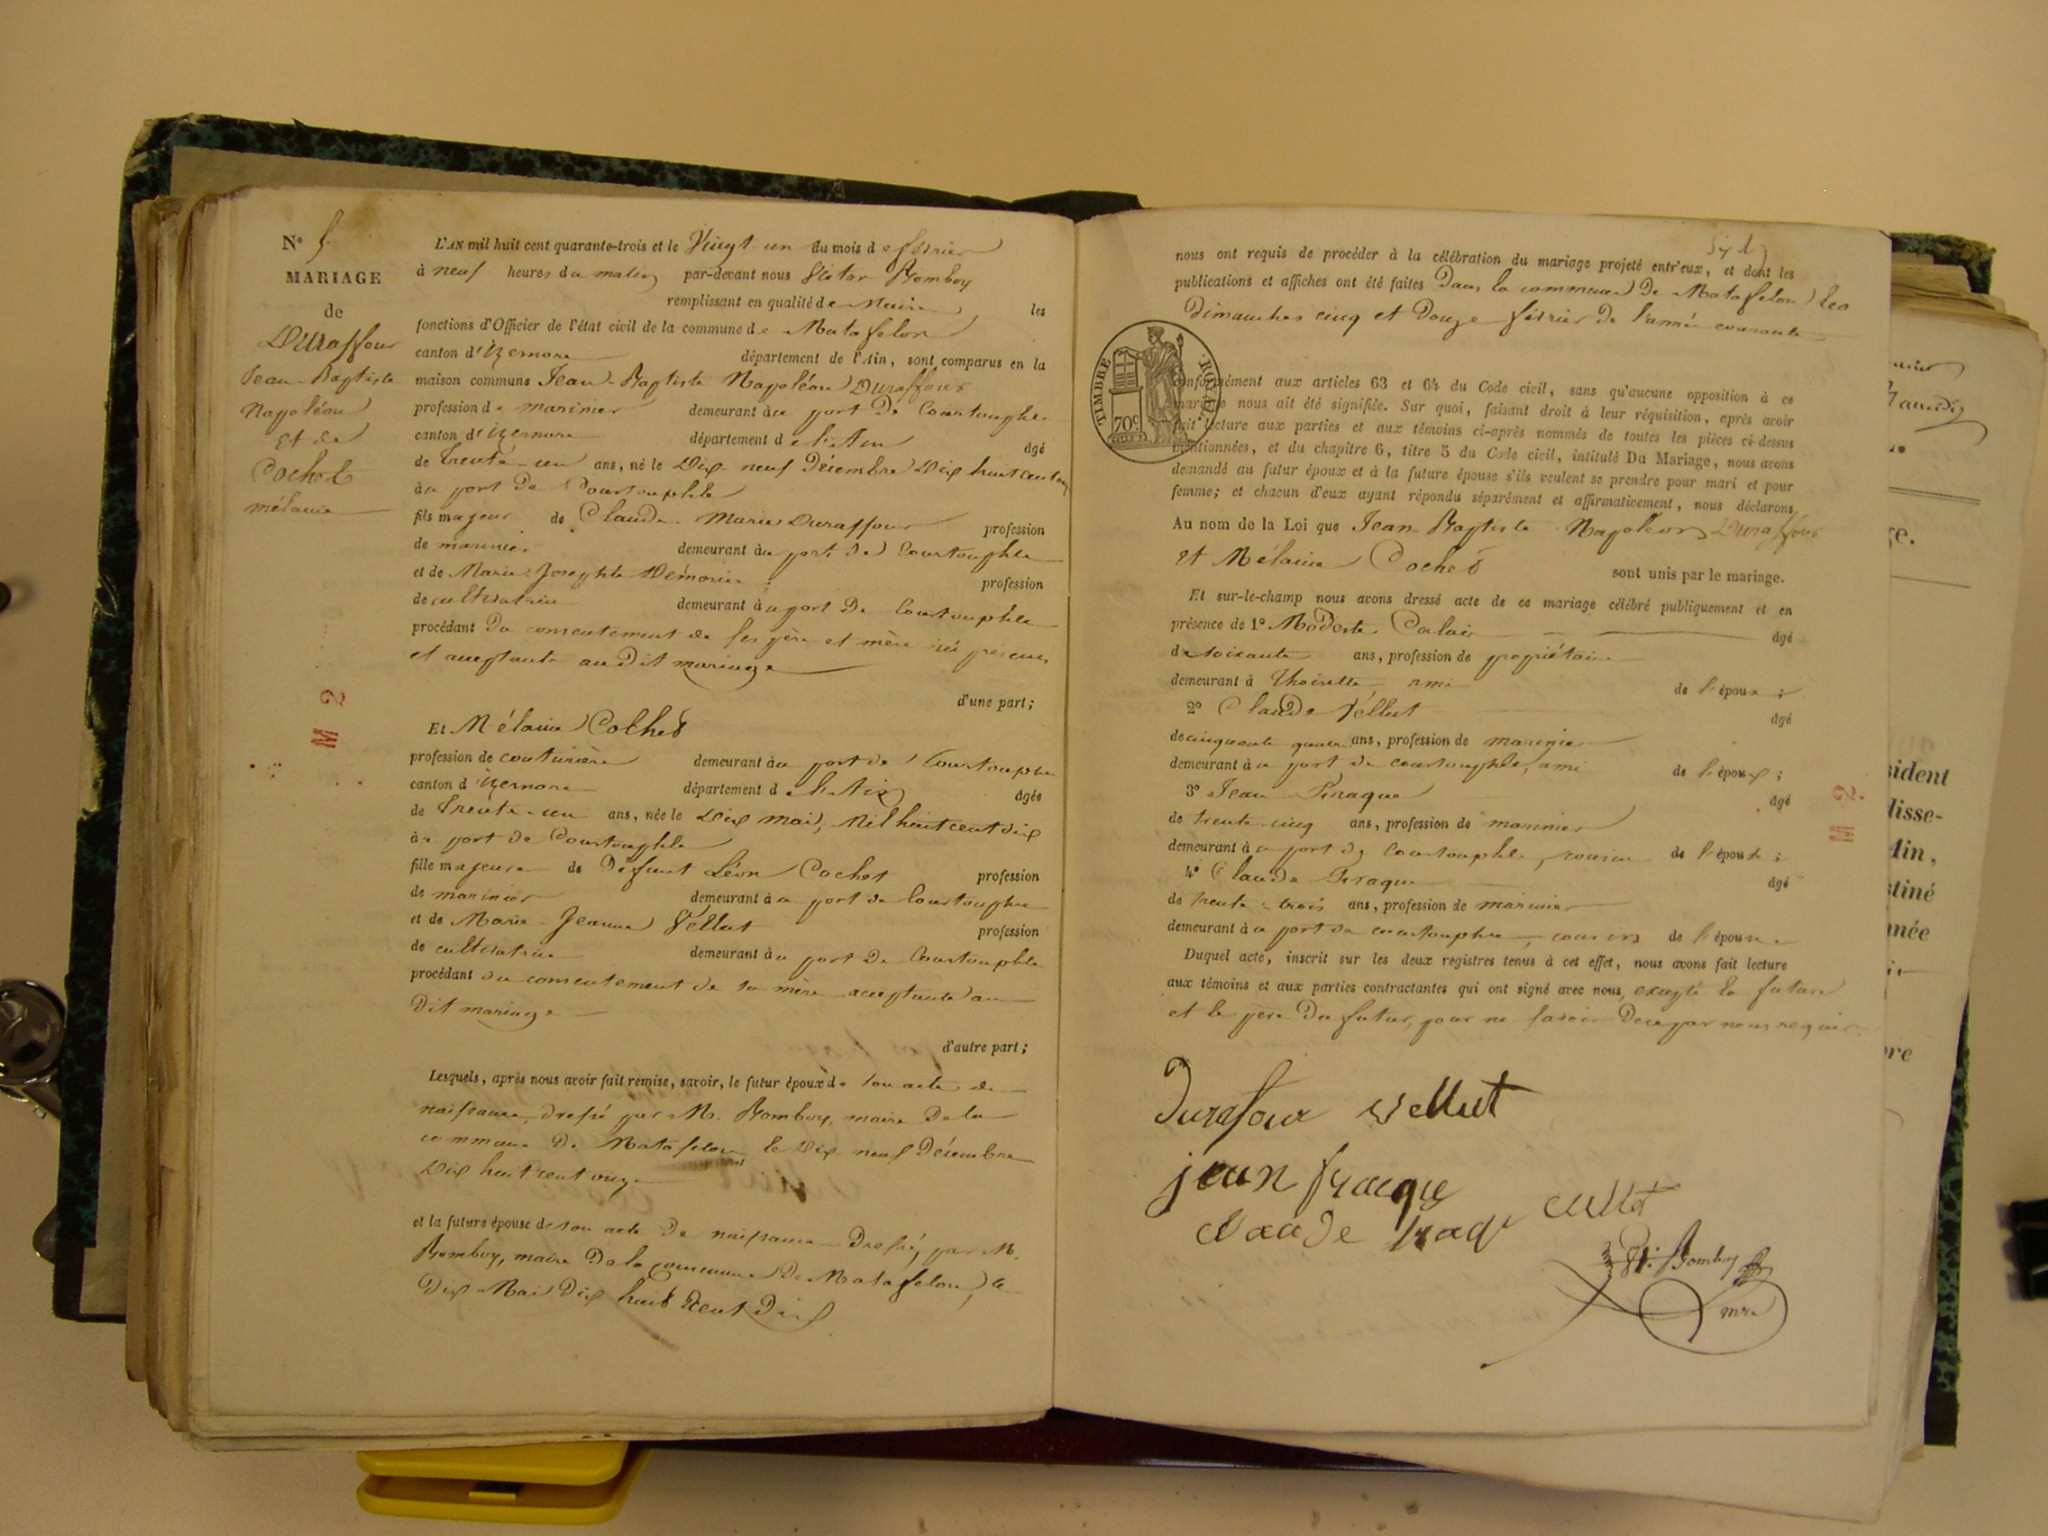 N° 5
MARIAGE
de
Duraffour
Jean-Baptiste
Napoléon
et de
Cochet
mélanie
L'AN mil huit cent quarante-trois et le Vingt un du mois de février
à neuf heures du matin par-devant nous Victor Bomboy
remplissant en qualité de Maire les
fonctions d'Officier de l'état civil de la commune de Matafelon
canton d'izernore département de l'Ain, sont comparus en la
maison commune Jean-Baptiste Napoléon Duraffour
profession de marinier demeurant au port de Courtouphle
canton d'izernore département de l'Ain âgé
de trente-un ans, né le Dix neuf Décembre Dix huit cent onze
au port de Courtouphle
fils majeur de Claude-Marie Duraffour profession
de marinier demeurant au port de Courtouphle
et de Marie-Josephte profession
de cultivatrice demeurant au port de Courtouphle
procédant du consentement de ses père et mère ici présens
et acceptants au dit mariage
d'une part;
Et Mélanie Cochet
profession de couturière demeurant au port de Courtouphle
canton d'izernore département de l'Ain âgée
de trente-un ans, née le Dix mai, Mil huit cent dix
au port de Courtouphle
fille majeure de Défunt Léon Cochet profession
de marinier demeurant au port de Courtouphle
et de Marie-Jeanne Vellut profession
de cultivatrice demeurant au port de Courtouphle
procédant du consentement de sa mère acceptante au
dit mariage
d'autre part;
Lesquels, après nous avoir fait remise, savoir, le futur époux de son acte de
naissance, dressé par M. Bomboy, maire de la
commune de Matafelon le Dix neuf Décembre
Dix huit cent onze
et la future épouse de son acte de naissance dressé, par M.
Bomboy, maire de la commune de Matafelon, le
Dix Mai Dix huit cent Dix
M 2
nous ont requis de procéder à la célébration du mariage projeté entr'eux, et dont les
publications et affiches ont été faites Dans la commune de Matafelon les
Dimanches cinq et Douze février de l'année courante
TIMBRE ROYAL
70c
conformément aux articles 63 et 64 du Code civil, sans qu'aucune opposition à ce
mariage nous ait été signifiée. Sur quoi, faisant droit à leur réquisition, après avoir
fait lecture aux parties et aux témoins ci-après nommés de toutes les pièces ci-dessus
mentionnées, et du chapitre 6, titre 5 du Code civil, intitulé Du Mariage, nous avons
demandé au futur époux et à la future épouse s'ils veulent se prendre pour mari et pour
femme; et chacun d'eux ayant répondu séparément et affirmativement, nous déclarons
Au nom de la Loi que Jean-Baptiste Napoléon Duraffour
et Mélanie Cochet sont unis par le mariage.
Et sur-le-champ nous avons dressé acte de ce mariage célébré publiquement et en
présence de 1° Modeste Calais âgé
de soixante ans, profession de propriétaire
demeurant à Thoirette ami de l'époux;
2° Claude Vellut âgé
de cinquante quatre ans, profession de marinier
demeurant au port de courtouphle, ami de l'époux;
3° Jean Piraque âgé
de trente-cinq ans, profession de marinier
demeurant au port de Courtouphle, cousin de l'épouse;
4° Claude Piraque âgé
de trente-trois ans, profession de marinier
demeurant au port de courtouphle, cousin de l'épouse
Duquel acte, inscrit sur les deux registres tenus à cet effet, nous avons fait lecture
aux témoins et aux parties contractantes qui ont signé avec nous, excepté la future
et le père du futur, pour ne savoir de ce par nous requis
Durafour vellut
jean
Claude
Bomboy
mre
M 2
ge.
sident
disse-
Ain,
stiné
nnée